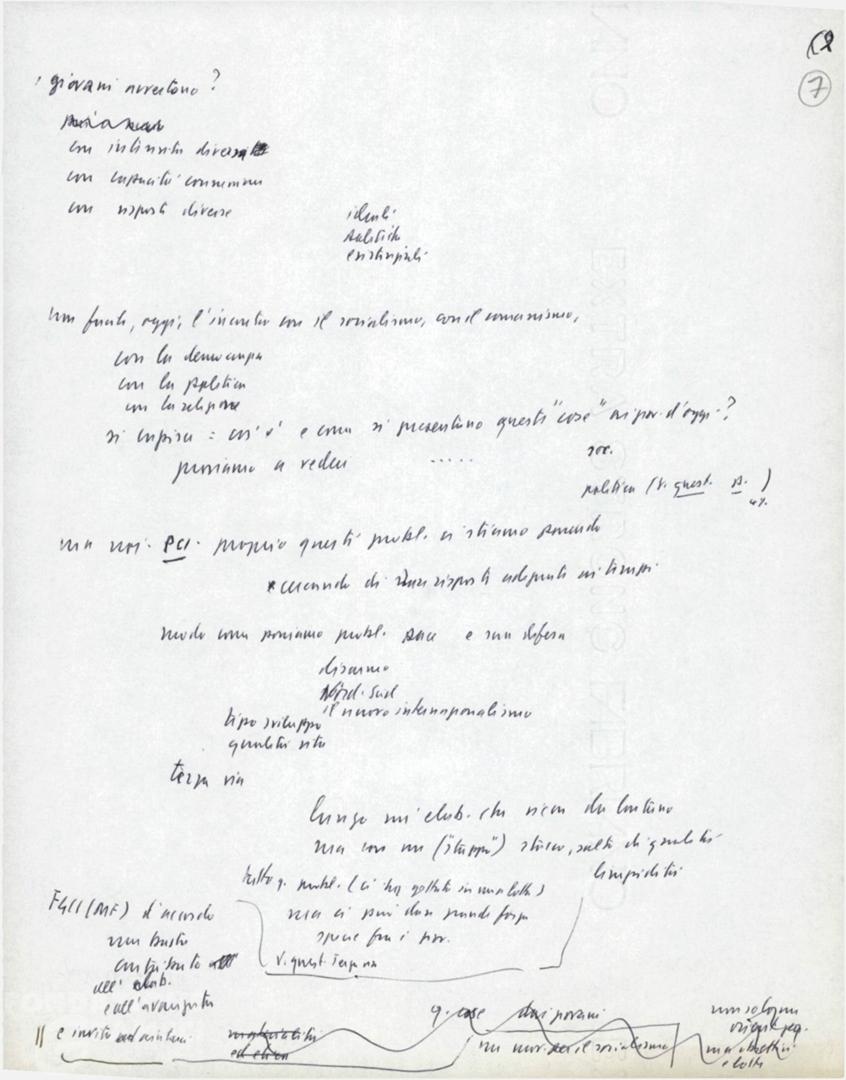 7
i giovani avvertono?
con intensità diversa
con capacità
con risposte diverse
ideali
politiche
esistenziali
non facile, oggi, l'incontro con il socialismo, con il comunismo,
con la democrazia
con la politica
con la religione
si capisce = cos'è e come si presentano queste "cose" ai giov. d'oggi?
proviamo a vedere .....
soc.
politica (v. quest.
ma noi - PCI - proprio questi probl. ci stiamo ponendo
cercando di dare risposte adeguate ai tempi
modo come poniamo probl. pace e sua difesa
disarmo
Nord-Sud
il nuovo internazionalismo
tipo sviluppo
qualità vita
terza via
lunga elab. che viene da lontano
ma con un ("strappo") stacco, salto di qualità
limpidità
tutto q. probl. (ci ha gettato in una lotta)
ma ci può dare grande forza
specie fra i giov.
v. quest. Terza via
FGCI (MF) d'accordo
non basta
contributo
all' elab.
e all'avanzata
e invito ad aiutarci
q. cose dai giovani
un mov. per il socialismo
non solo
ma obiettivi
e lotte